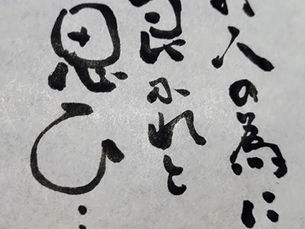 人の為に
良かれと
思ひ…